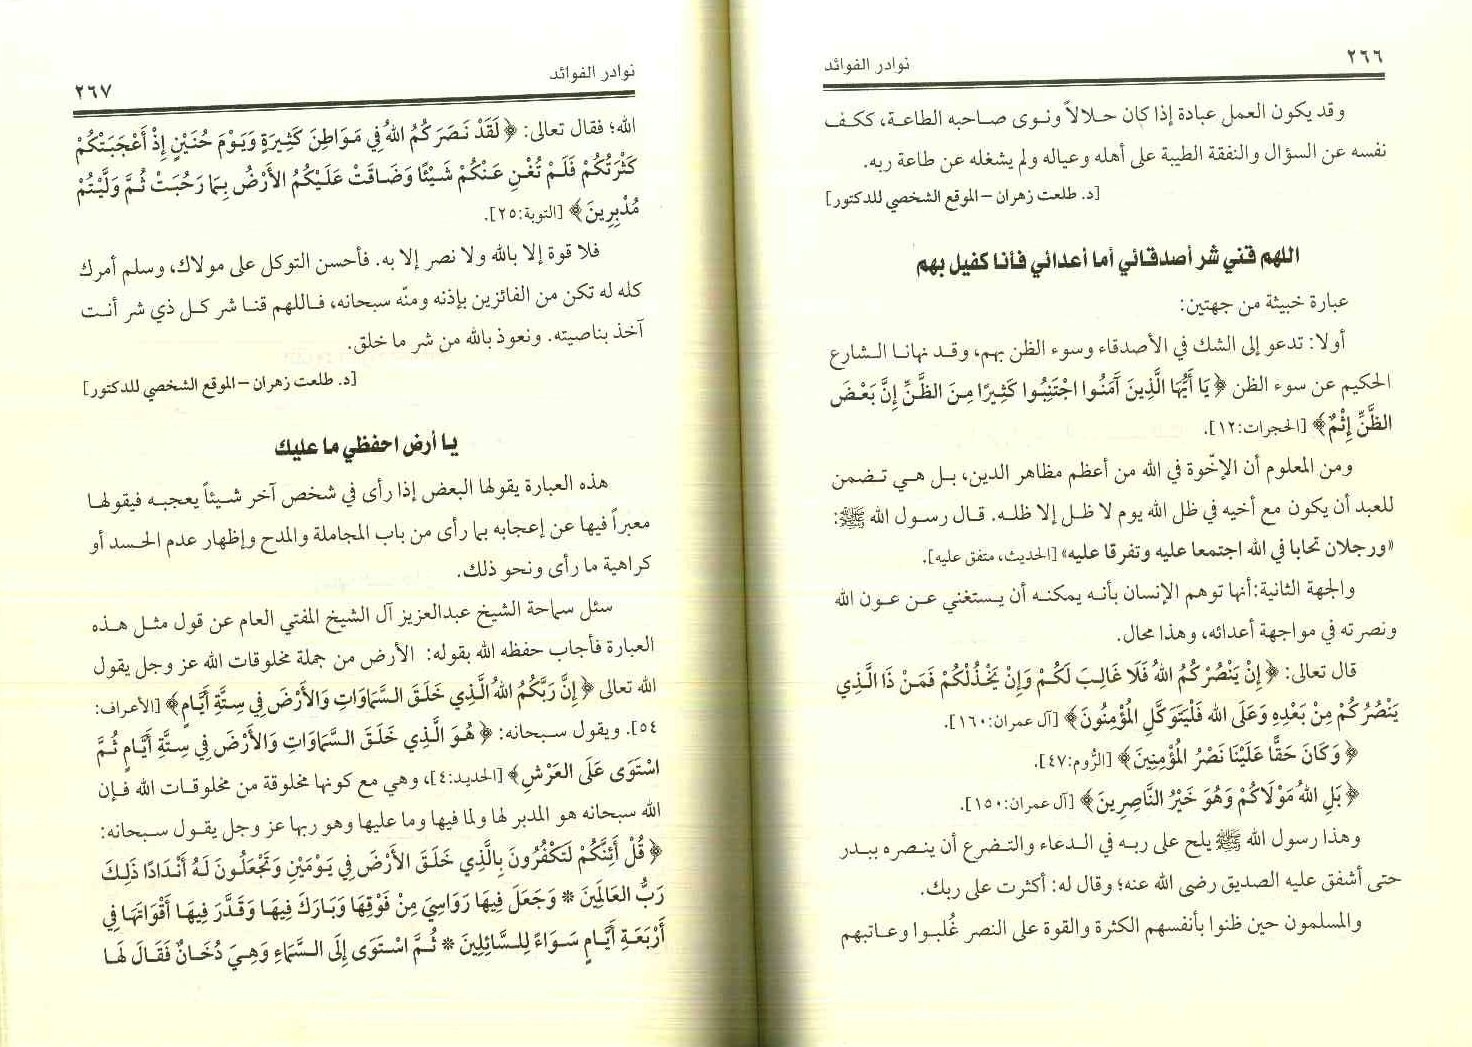 ٢٦٦
نوادر الفوائد
وقد يكون العمل عبادة إذا كان حلالاً ونوى صاحبه الطاعة، ككف
نفسه عن السؤال والنفقة الطيبة على أهله وعياله ولم يشغله عن طاعة ربه.
[د. طلعت زهران – الموقع الشخصي للدكتور]
اللهم قني شر أصدقائي أما أعدائي فأنا كفيل بهم
عبارة خبيثة من جهتين:
أولا: تدعو إلى الشك في الأصدقاء وسوء الظن بهم، وقد نهانا الشارع
الحكيم عن سوء الظن ﴿يَا أَيُّهَا الَّذِينَ آَمَنُوا اجْتَنِبُوا كَثِيرًا مِنَ الظَّنِّ إِنَّ بَعْضَ
الظَّنِّ إِثْمٌ﴾ [الحجرات:١٢].
ومن المعلوم أن الإخّوة في الله من أعظم مظاهر الدين، بل هي تضمن
للعبد أن يكون مع أخيه في ظل الله يوم لا ظل إلا ظله. قال رسول الله ﷺ:
«ورجلان تحابا في الله اجتمعا عليه وتفرقا عليه» [الحديث، متفق عليه].
والجهة الثانية:أنها توهم الإنسان بأنه يمكنه أن يستغني عن عون الله
ونصرته في مواجهة أعدائه، وهذا محال.
قال تعالى: ﴿إِنْ يَنْصُرْكُمُ اللهُ فَلَا غَالِبَ لَكُمْ وَإِنْ يَخْذُلْكُمْ فَمَنْ ذَا الَّذِي
يَنْصُرُكُمْ مِنْ بَعْدِهِ وَعَلَى الله فَلْيَتَوَكَّلِ المُؤْمِنُونَ﴾ [آل عمران:١٦٠].
﴿وَكَانَ حَقًّا عَلَيْنَا نَصْرُ المُؤْمِنِينَ﴾ [الرُّوم:٤٧].
﴿بَلِ اللهُ مَوْلَاكُمْ وَهُوَ خَيْرُ النَّاصِرِينَ﴾ [آل عمران:١٥٠].
وهذا رسول الله ﷺ يلح على ربه في الدعاء والتضرع أن ينصره ببدر
حتى أشفق عليه الصديق رضى الله عنه؛ وقال له: أكثرت على ربك.
والمسلمون حين ظنوا بأنفسهم الكثرة والقوة على النصر غُلبوا وعاتبهم
نوادر الفوائد
٢٦٧
الله؛ فقال تعالى: ﴿لَقَدْ نَصَرَكُمُ اللهُ فِي مَوَاطِنَ كَثِيرَةٍ وَيَوْمَ حُنَيْنٍ إِذْ أَعْجَبَتْكُمْ
كَثْرَتُكُمْ فَلَمْ تُغْنِ عَنْكُمْ شَيْئًا وَضَاقَتْ عَلَيْكُمُ الأَرْضُ بِمَا رَحُبَتْ ثُمَّ وَلَّيْتُمْ
مُدْبِرِينَ﴾ [التوبة:٢٥].
فلا قوة إلا بالله ولا نصر إلا به. فأحسن التوكل على مولاك، وسلم أمرك
كله له تكن من الفائزين بإذنه ومنّه سبحانه، فاللهم قنا شر كل ذي شر أنت
آخذ بناصيته. ونعوذ بالله من شر ما خلق.
[د. طلعت زهران – الموقع الشخصي للدكتور]
يا أرض احفظي ما عليك
هذه العبارة يقولها البعض إذا رأى في شخص آخر شيئاً يعجبه فيقولها
معبراً فيها عن إعجابه بما رأى من باب المجاملة والمدح وإظهار عدم الحسد أو
كراهية ما رأى ونحو ذلك.
سئل سماحة الشيخ عبدالعزيز آل الشيخ المفتي العام عن قول مثل هذه
العبارة فأجاب حفظه الله بقوله: الأرض من جملة مخلوقات الله عز وجل يقول
الله تعالى ﴿إِنَّ رَبَّكُمُ اللهُ الَّذِي خَلَقَ السَّمَاوَاتِ وَالأَرْضَ فِي سِتَّةِ أَيَّامٍ﴾ [الأعراف:
٥٤]. ويقول سبحانه: ﴿هُوَ الَّذِي خَلَقَ السَّمَاوَاتِ وَالأَرْضَ فِي سِتَّةِ أَيَّامٍ ثُمَّ
اسْتَوَى عَلَى العَرْشِ﴾ [الحديد:٤]، وهي مع كونها مخلوقة من مخلوقات الله فإن
الله سبحانه هو المدبر لها ولما فيها وما عليها وهو ربها عز وجل يقول سبحانه:
﴿قُلْ أَئِنَّكُمْ لَتَكْفُرُونَ بِالَّذِي خَلَقَ الأَرْضَ فِي يَوْمَيْنِ وَتَجْعَلُونَ لَهُ أَنْدَادًا ذَلِكَ
رَبُّ العَالَمِينَ * وَجَعَلَ فِيهَا رَوَاسِيَ مِنْ فَوْقِهَا وَبَارَكَ فِيهَا وَقَدَّرَ فِيهَا أَقْوَاتَهَا فِي
أَرْبَعَةِ أَيَّامٍ سَوَاءً لِلسَّائِلِينَ * ثُمَّ اسْتَوَى إِلَى السَّمَاءِ وَهِيَ دُخَانٌ فَقَالَ لَهَا